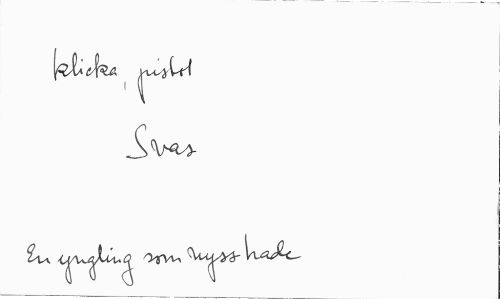 klicka, pistol
Svas
En yngling som nyss hade